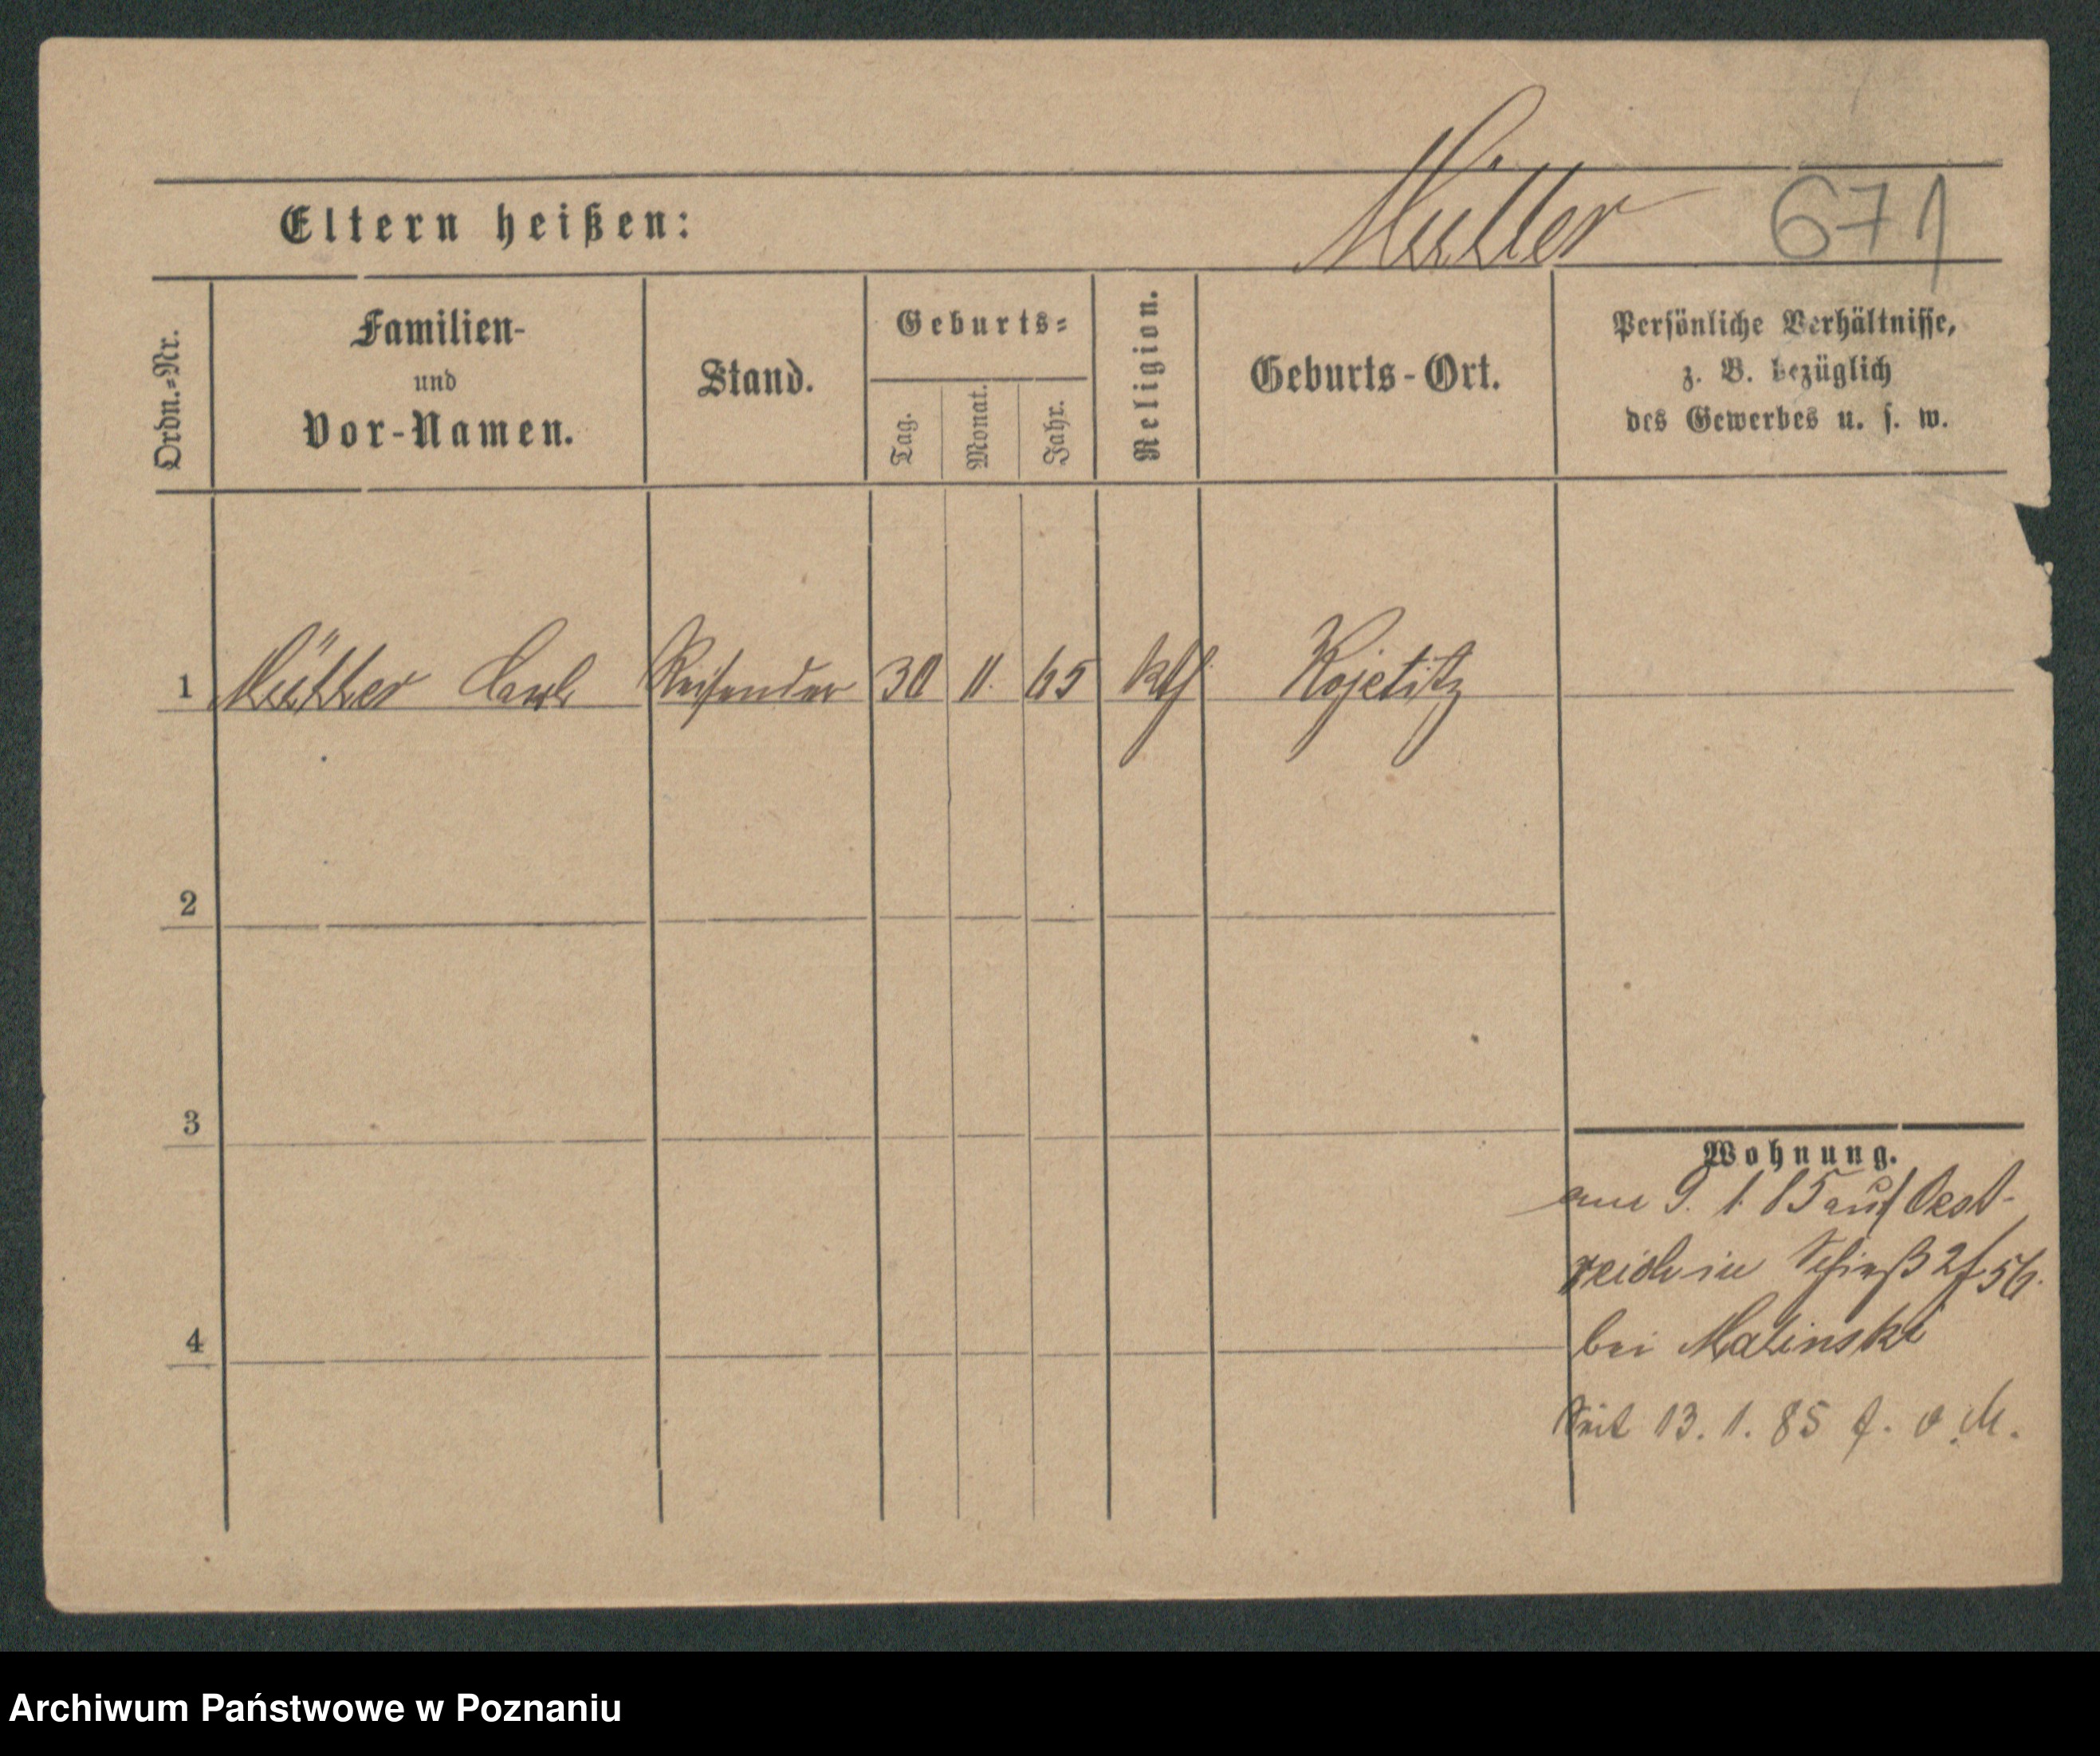 Müller
671
Eltern heißen:
Ordn.-Nr.
Familien-
und
Vor-Namen.
Stand.
Geburts-
Tag.
Monat.
Jahr.
Religion.
Geburts-Ort.
Persönliche Verhältnisse,
z. B. bezüglich
des Gewerbes u. s. w.
1 Müller Carl Reisender 30 11. 65 kth Kojetitz
2
3
4
Wohnung.
am 9. 1. 85 aus Oest-
reich in
bei Malinski
Seit 13. 1. 85 f. o. M.
Archiwum Państwowe w Poznaniu